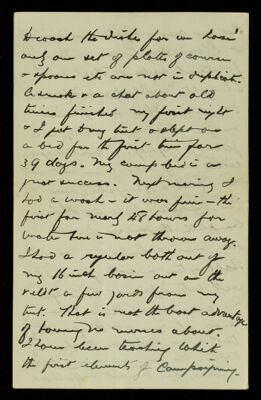 & wash the dishes for we have
only one set of plates of course
& spoons etc are not in duplicate.
A smoke & a chat about old
times finished my first night
& I put up my tent & slept on
a bed for the first time for
39 days. My camp bed is a
great success. Next morning I
had a wash - it was fine - the
first for nearly 48 hours for
water here is not thrown away.
I had a regular bath out of
my 16 inch basin out on the
veldt a few yards from my
tent. That is not the least advantage
of having no nurses about.
I have been teaching White
the first elements of Campaigning.